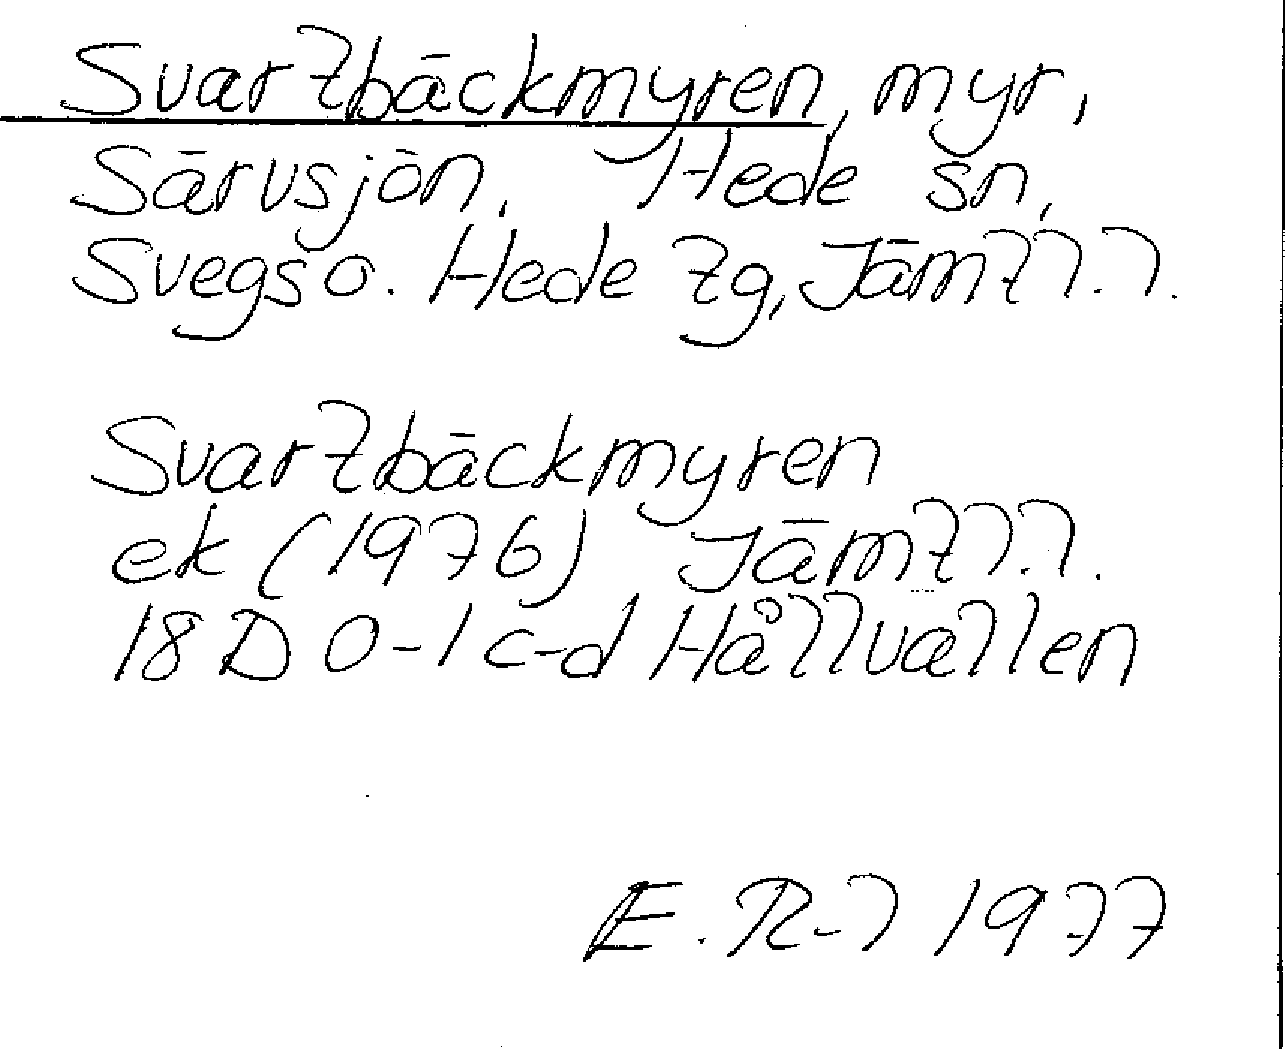 Svartbäckmyren, myr,
Särvsjön, Hede sn,
Svegs o. Hede tg, Jämtl. l.
Svartbäckmyren
ek (1976) Jämtl. l.
18D 0-1 c-d Hållvallen
E. R-l 1977